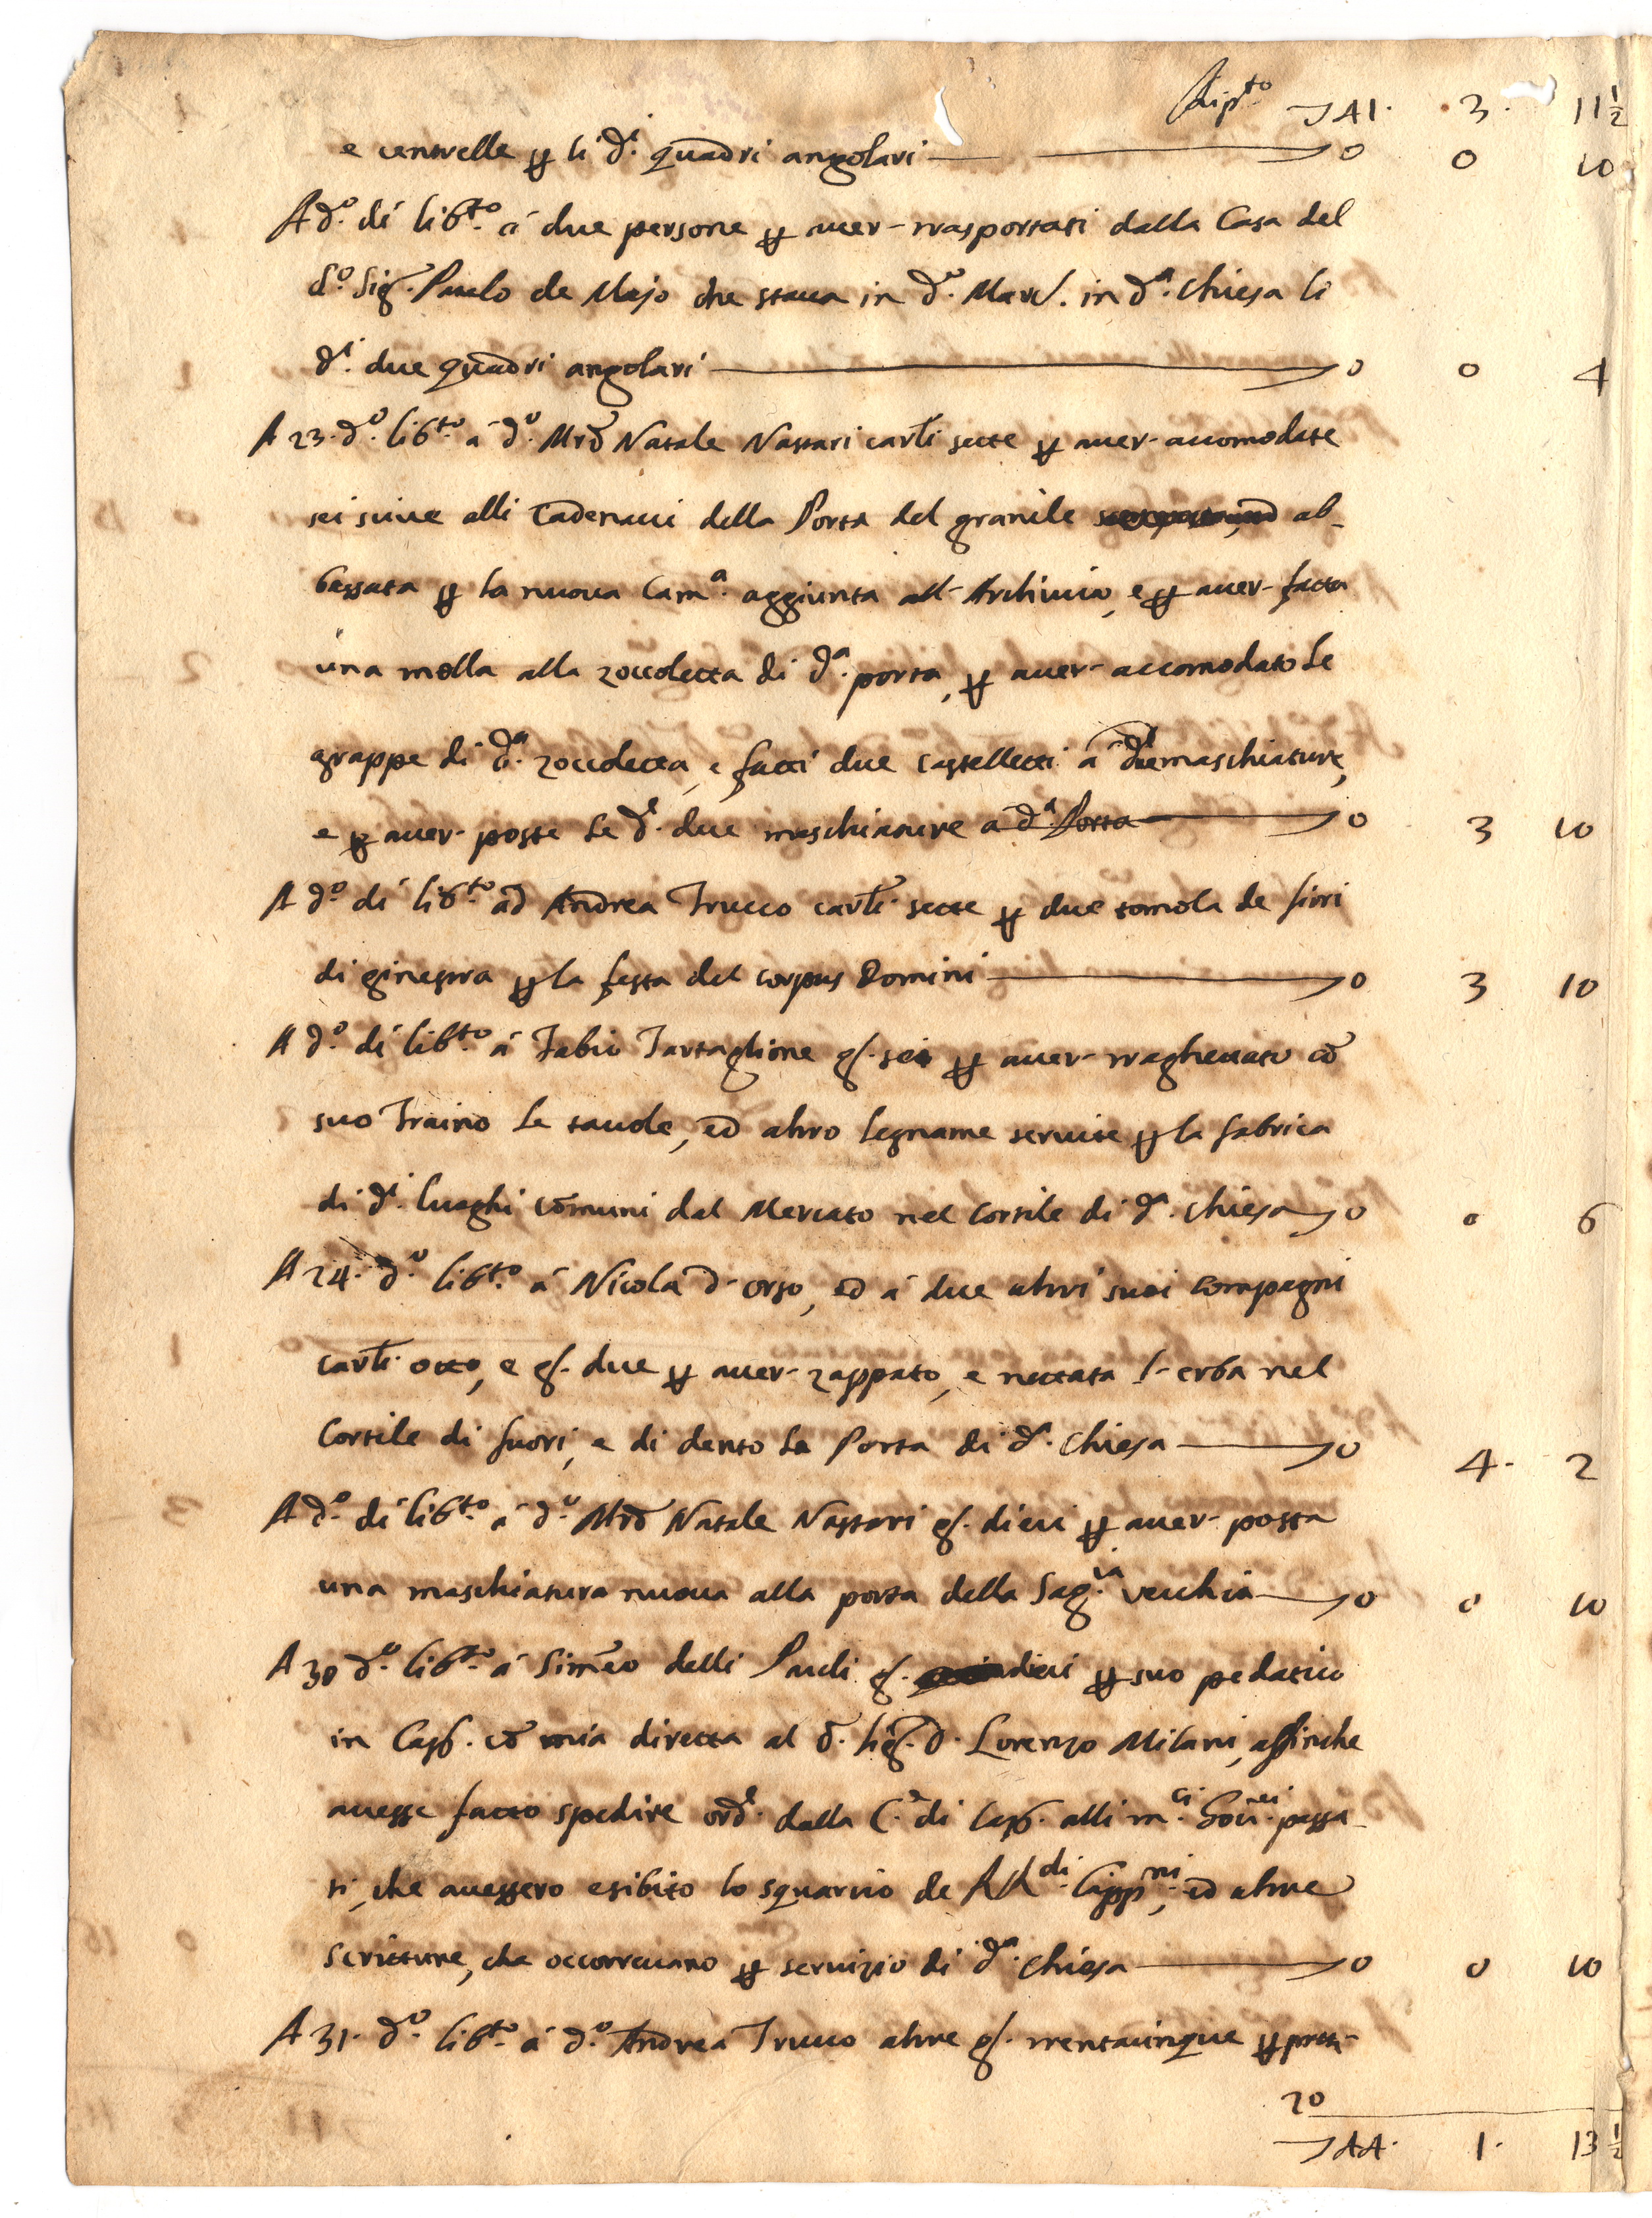 A dip.to 41. 3. 11 1/2
e centrelle p li d.i quadri angolari — 0 0 10
A d.o dì lib.to à due persone p auer trasportati dalla Casa del
d.o Sig.r Paulo de Majo che staua in d.o Marc. in d.a Chiesa li
d.i due quadri angolari — 0 0 4
A 23. d.o lib.to à d.o Mrõ Natale Nastari carl.i sette p auer accomodate
sei siuve alli Cadenacci della Porta del granile ab-
bassata p la nuoua Cam.a aggiunta all' Archiuio, e p auer fatta
una molla alla zoccoletta di d.a porta, p auer accomodato le
grappe di d.a zoccoletta, e fatti due castelletti à due maschiature,
e p auer poste le d.e due maschiature a d.a Porta — 0 3 10
A d.o dì lib.to ad Andrea Trucco carl.i sette p due tomola de fiori
di ginestra p la festa del Corpus Domini — 0 3 10
A d.o dì lib.to à Fabio Tartaglione g. sei p auer traghettato cõ
suo Traino le tauole, ed altro legname seruite p la fabrica
di d.i luoghi cõmuni dal Mercato nel Cortile di d.a Chiesa — 0 0 6
A 24. d.o lib.to à Nicola d'orso, ed à due altri suoi Compagni
carl.i otto, e g. due p auer zappato, e nettata l'erba nel
Cortile di fuori, e di dento la Porta di d.a Chiesa — 0 4. 2
A d.o dì lib.to à d.o Mrõ Natale Nastari g. dieci p auer posta
una maschiatura nuoua alla porta della Sag.ia vecchia — 0 0 10
A 30 d.o lib.to à Simeo delli Paoli g. dieci p suo pedatico
in Cap. cõ mia diretta al d. Sig. D. Lorenzo Milani, affinche
auesse fatto spedire ord.e dalla C.e di Cap. alli m.ci Gou.ei passa-
ti, che auessero esibito lo squarcio de RR.di Capp.ni, ed altre
scritture, che occorreuano p seruizio di d.a Chiesa — 0 0 10
A 31. d.o lib.to à d.o Andrea Trucco altre g. trentacinque p
20
44. 1. 13 1/2